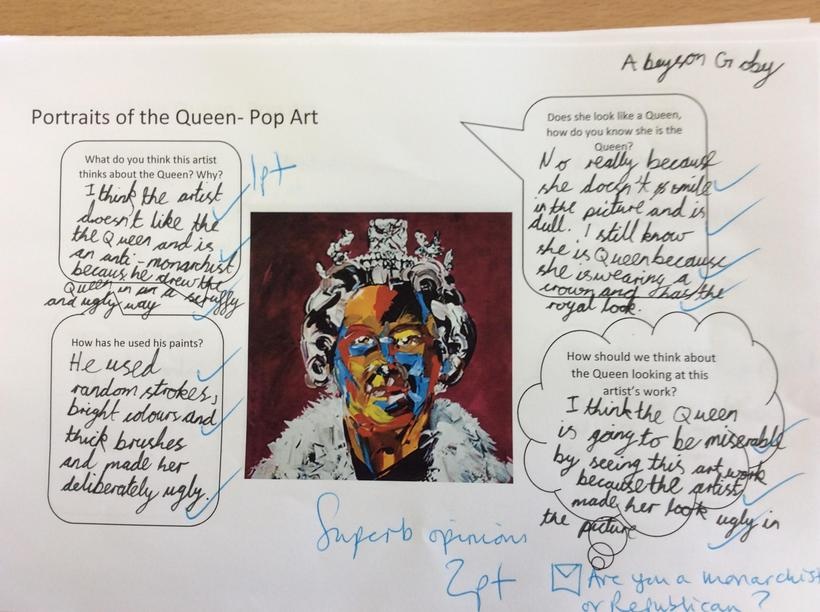 Abeyson Goby
Portraits of the Queen- Pop Art
What do you think this artist
thinks about the Queen? Why?
I think the artist
doesn't like the
the Queen and is
an anti-monarchist
becaus he drew the
Queen in an a scruffy
and ugly way
1pt
Does she look like a Queen,
how do you know she is the
Queen?
No really because
she doesn't smile
in the picture and is
dull. I still know
she is Queen because
she is wearing a
crown and has the
royal look.
How has he used his paints?
He used
random strokes,
bright colours and
thick brushes
and made her
deliberately ugly.
How should we think about
the Queen looking at this
artist's work?
I think the Queen
is going to be miserable
by seeing this art work
because the artist
made her look ugly in
the picture
Superb opinions
2pt
Are you a monarchist
or Republican?